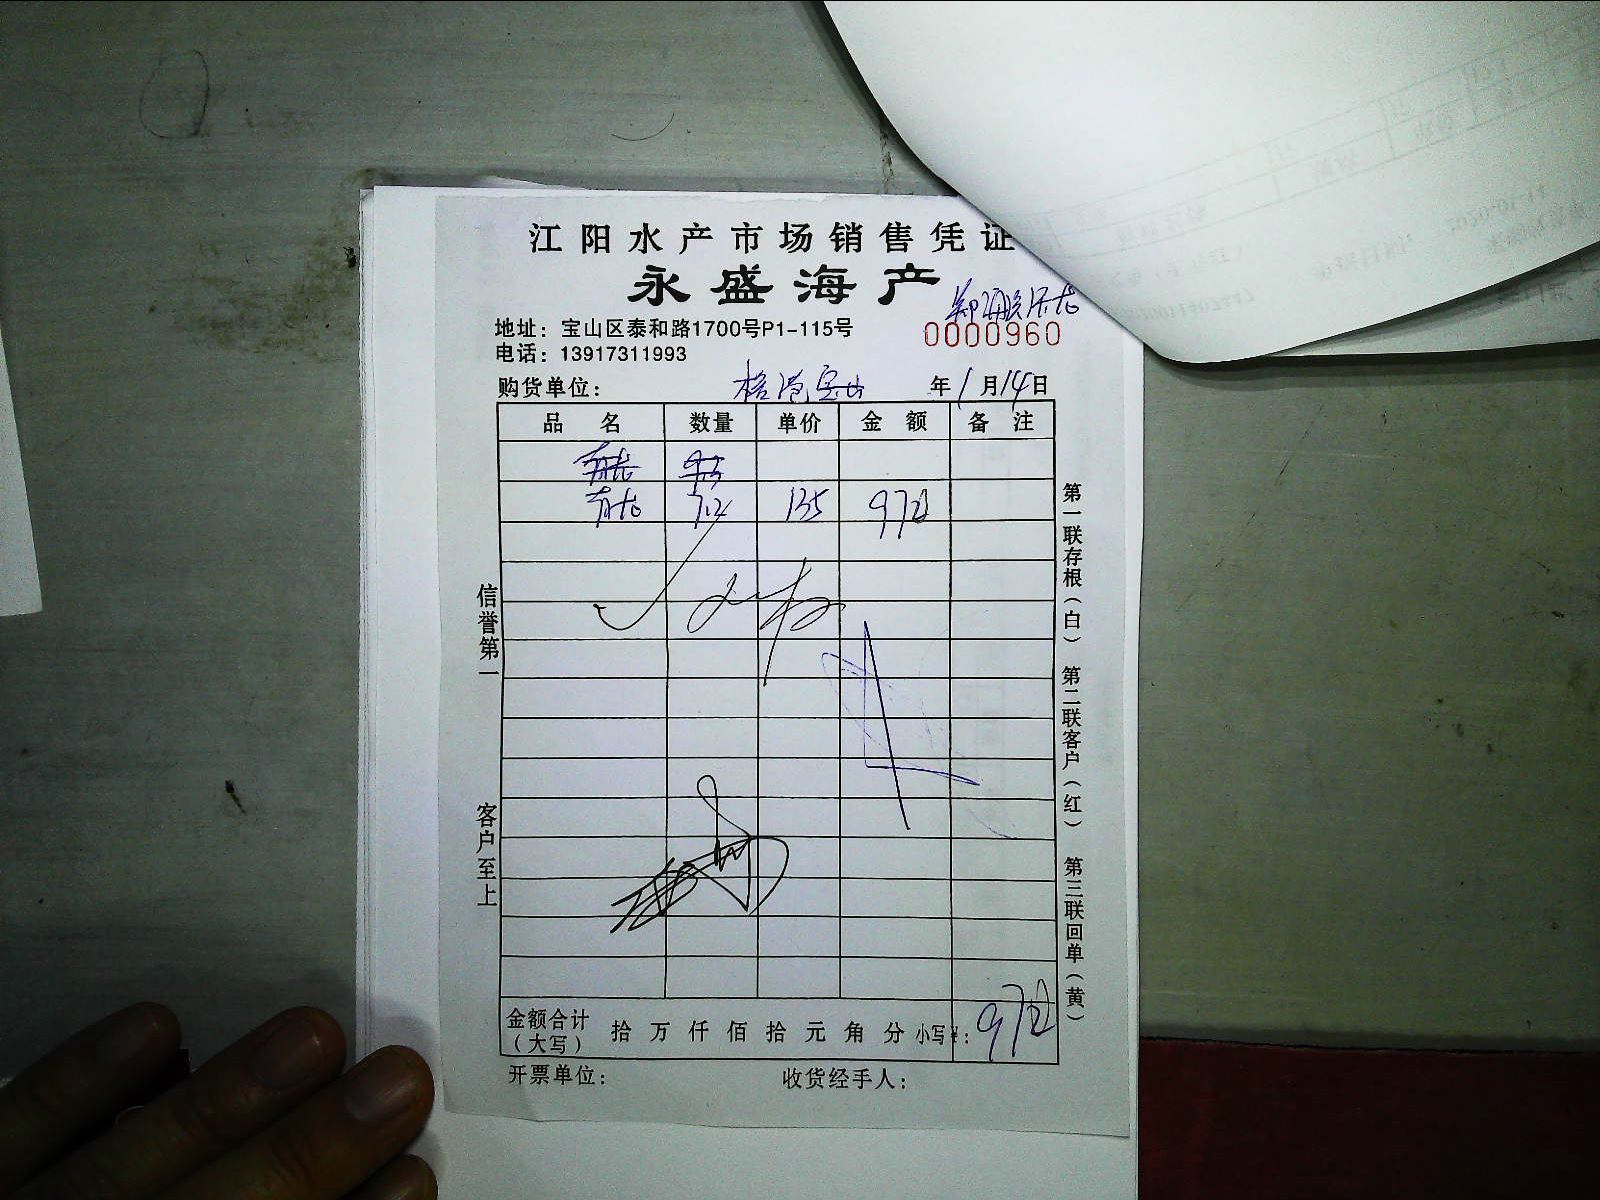 江阳水产市场销售凭证
永盛海产
地址：宝山区泰和路1700号P1-115号
0000960
电话：13917311993
购货单位： 年1月14日
品名 数量 单价 金额 备注
青龙 7.2 135 972
信誉第一
客户至上
第一联存根（白） 第二联客户（红） 第三联回单（黄）
金额合计（大写） 拾万仟佰拾元角分 小写¥： 972
开票单位： 收货经手人：